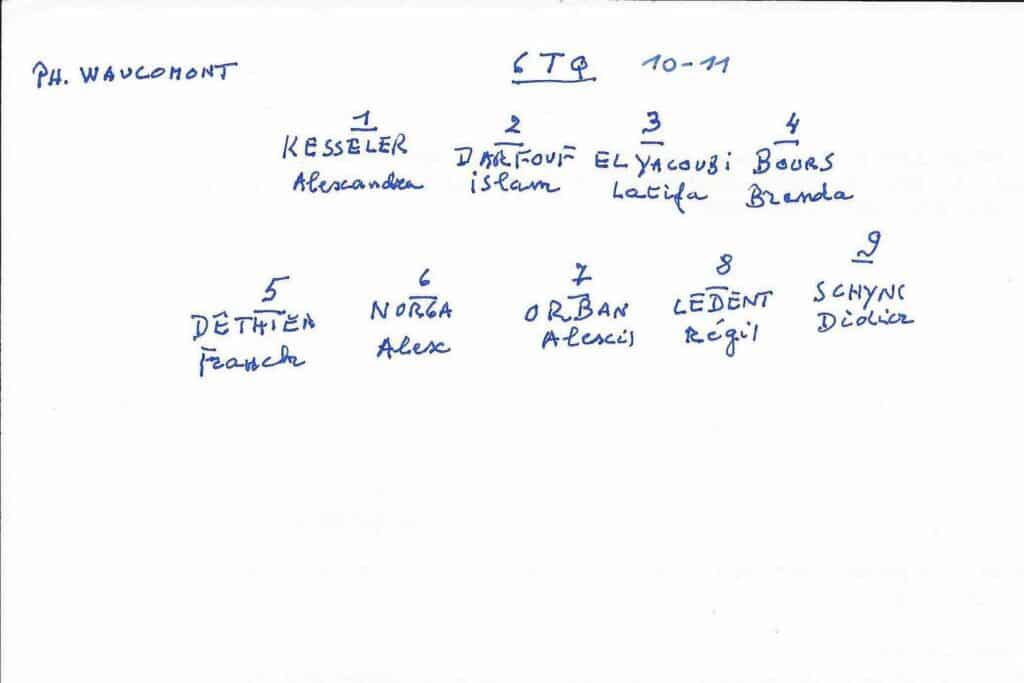 PH. WAUCOMONT 6 TQ 10-11
1 2 3 4
KESSELER DARFOUF EL YACOUBI BOURS
Alexandra islam Latifa Brenda
5 6 7 8 9
DETHIER NORGA ORBAN LEDENT SCHYNC
Franck Alex Alexis Régis Didier